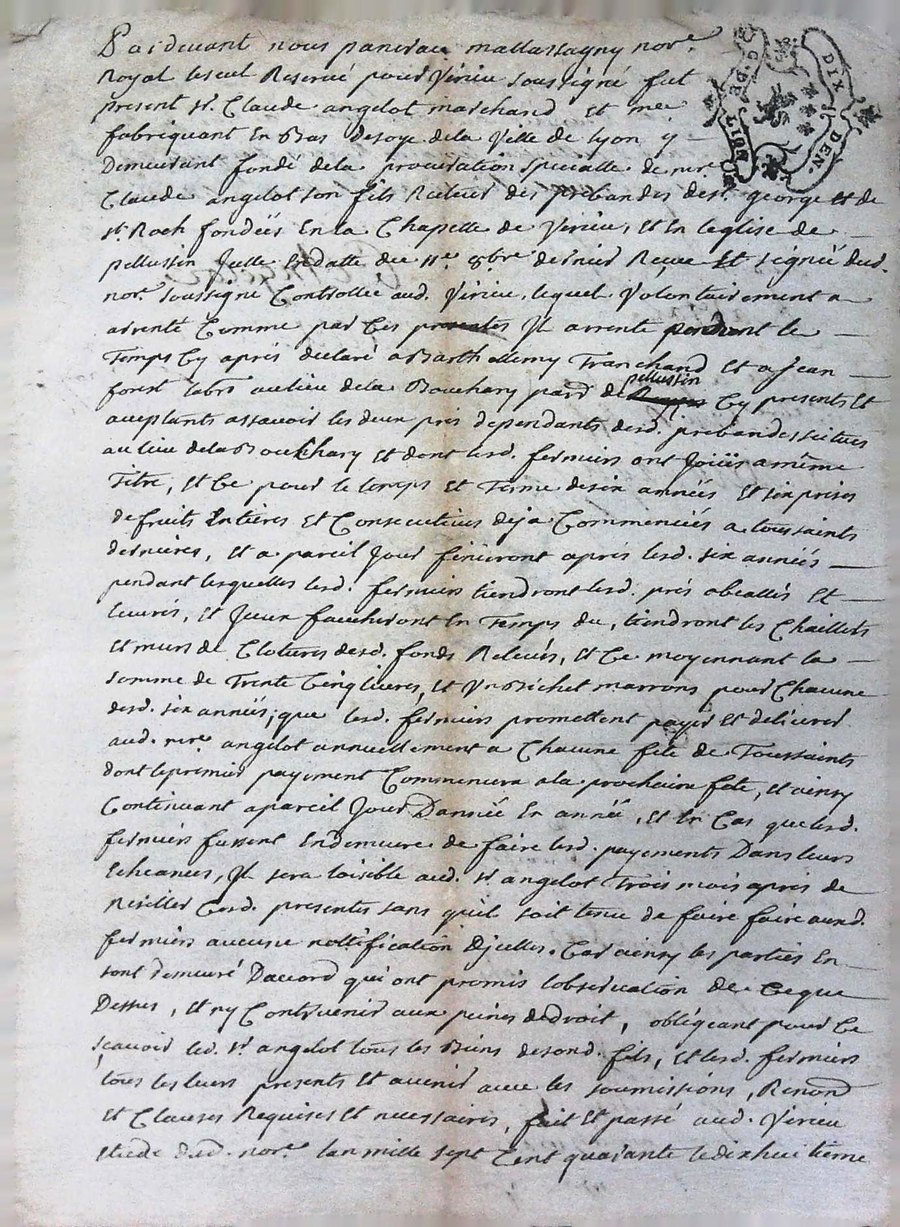 Pardevant nous pancrau mallassagny nore.
Royal le seul Reservé pour Virieu soussigné fut
present sr. Claude angelot marchand Et me
fabriquant En Bas de soye de la Ville de Lyon y
Demeurant fondé de la procuration specialle de mre
Claude angelot son fils Recteur des prebandes de st. george et de
st. Roch fondées En la Chapelle de Virieu, et En leglise de
pellussin Jcelle En datte du 11e. 8bre dernier Reçue Et signée dud.
nore. soussigné Controllée aud. Virieu, lequel Volontairement a
arrenté Comme par Ces presentes Jl arrente pendant le
Temps Cy aprés declaré a Barthellemy Tranchand et a Jean
forest labrs. au lieu de la Bouchary par. de pellussin Cy presents et
acceptants assavoir les deux prés dependants desd. prebandes scitues
au lieu de la Boukhary et dont lesd. fermiers ont Joüis a même
Titre, et Ce pour le temps et Terme de six années et six prises
de fruits Entieres et Consecutives deja Commencées a toussaints
dernieres, et a pareil Jour finiront aprés lesd. six années
pendant lesquelles lesd. fermiers tiendront lesd. prés abeallés et
leurés, et Jceux faucheront En Temps du, tiendront les Chaillets
et murs de Clotures desd. fonds Relevés, et Ce moyennant la
somme de Trente Cinq livres, et Un Bichet marrons pour Chacune
desd. six années; que lesd. fermiers promettent payer et délivrer
aud. mre. angelot annuellement a Chacune fete de Toussaints
dont le premier payement Commencera a la prochaine fete, et ainsy
Continuant a pareil Jour D'année En année, et En Cas que lesd.
fermiers fussent En demeure de faire lesd. payements Dans leurs
Echeances, Jl sera loisible aud. sr. angelot Trois mois apres de
Resillier Cesd. presentes sans qu'il soit tenu de faire faire auxd.
fermiers aucune nottification d'jcelles. Car ainsy les parties En
sont demeuré Daccord qui ont promis lobservation de Ceque
Dessus, et n'y Contrevenir aux peines de droit, obligeant pour Ce
sçavoir led. sr. angelot tous les Biens de sond. fils, et lesd. fermiers
tous les leurs presents et avenir avec les soumissions, Renond
et Clauses Requises et necessaires, fait et passé aud. Virieu
Etude dud. nore. lan mille sept Cent quarante le dixhuitieme
G. DE LION
DIX DEN.